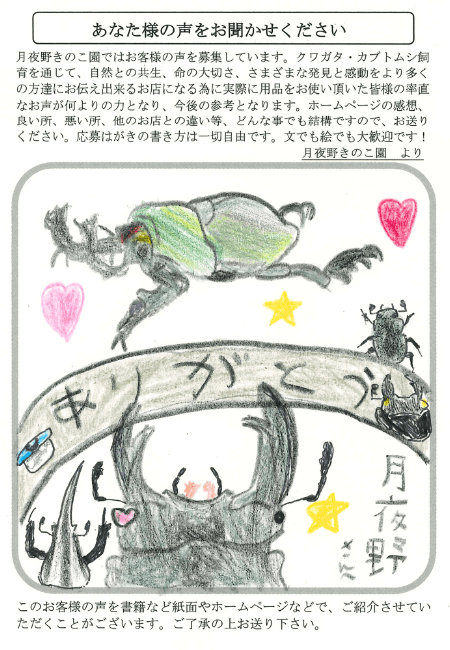 あなた様の声をお聞かせください
月夜野きのこ園ではお客様の声を募集しています。クワガタ・カブトムシ飼
育を通じて、自然との共生、命の大切さ、さまざまな発見と感動をより多く
の方達にお伝え出来るお店になる為に実際に用品をお使い頂いた皆様の率直
なお声が何よりの力となり、今後の参考となります。ホームページの感想、
良い所、悪い所、他のお店との違い等、どんな事でも結構ですので、お送り
ください。応募はがきの書き方は一切自由です。文でも絵でも大歓迎です！
月夜野きのこ園　より
ありがとう
月夜野
さんへ
このお客様の声を書籍など紙面やホームページなどで、ご紹介させてい
ただくことがございます。ご了承の上お送り下さい。